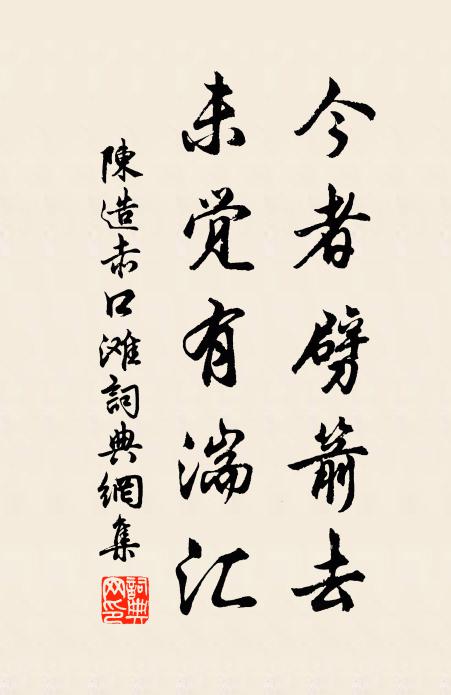 今者劈箭去
未觉有湍汇
陳造赤口滩詞典網集
詞典网印